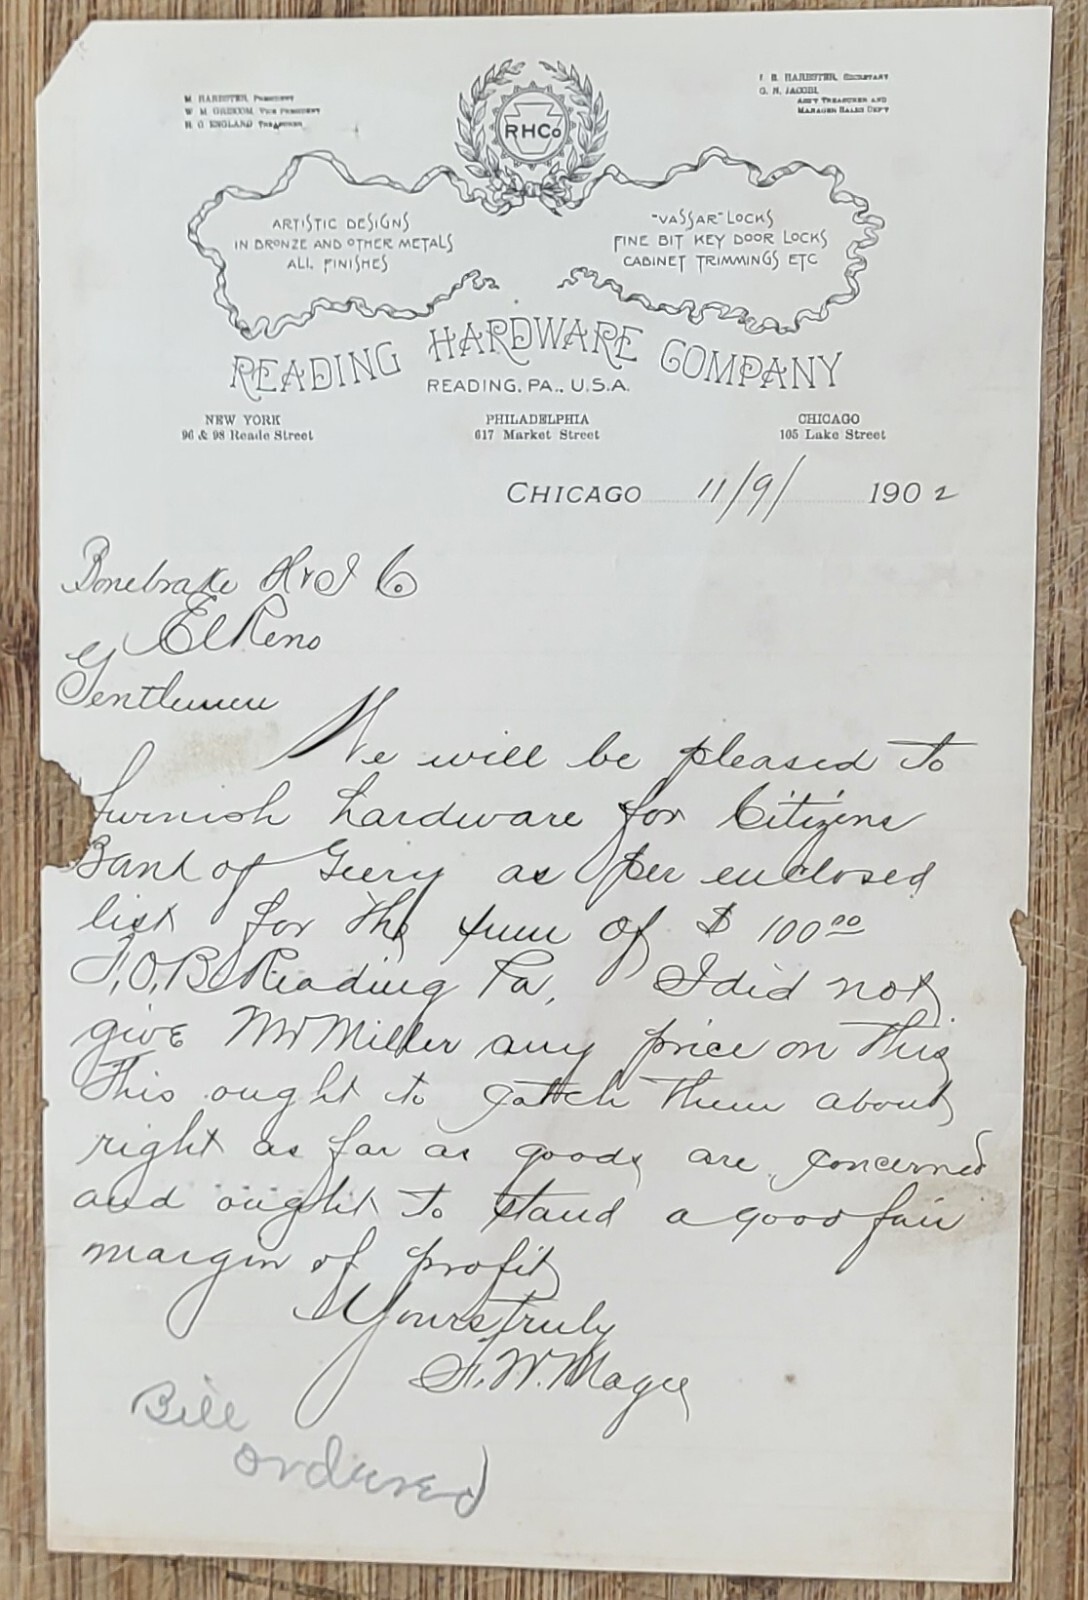 M. HARBSTER, PRESIDENT
W. M. GRISCOM, VICE PRESIDENT
H. C. ENGLAND TREASURER
HARBSTER, SECRETARY
G. H. JACOBI,
ASS'T TREASURER AND
MANAGER SALES DEP'T
RHCo
ARTISTIC DESIGNS
IN BRONZE AND OTHER METALS
ALL FINISHES
"VASSAR" LOCKS
FINE BIT KEY DOOR LOCKS
CABINET TRIMMINGS ETC
READING HARDWARE COMPANY
READING, PA., U.S.A.
NEW YORK
96 & 98 Reade Street
PHILADELPHIA
617 Market Street
CHICAGO
105 Lake Street
CHICAGO 11/9/ 1902
Bonebrake H & I Co
El Reno
Gentlemen
We will be pleased to
furnish hardware for Citizens
Bank of Geery as per enclosed
list for the sum of $ 100 00
F.O.B. Reading Pa. I did not
give Mr Miller any price on this
This ought to catch them about
right as far as goods are concerned
and ought to stand a good fair
margin of profit
Yours truly
F. W. Magee
Bill
ordered